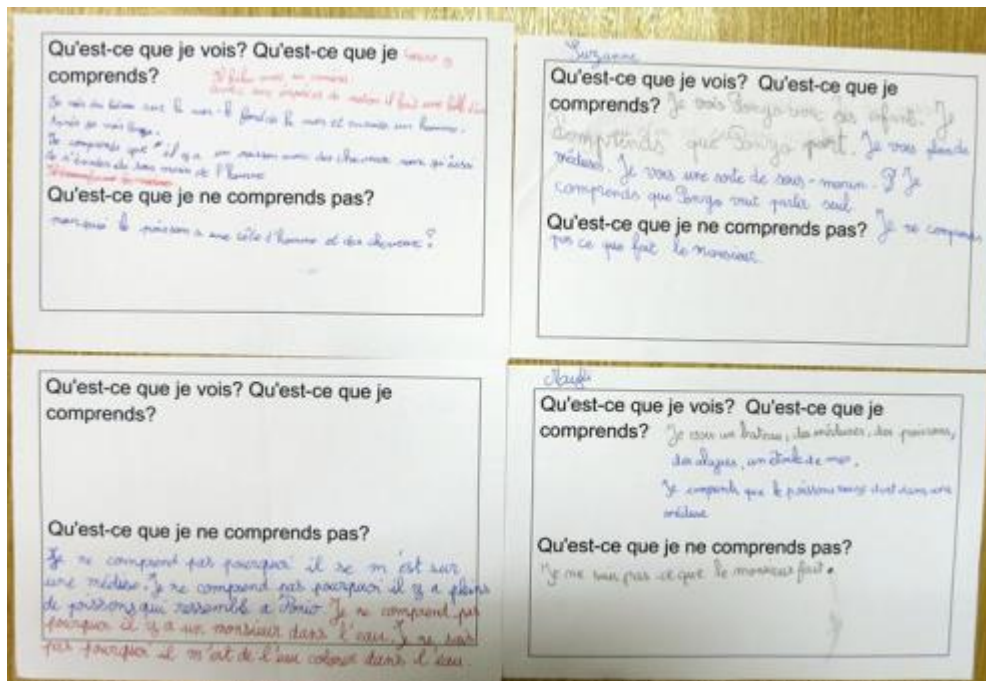 Qu'est-ce que je vois? Qu'est-ce que je
comprends?
Je vois un bateau sur la mer. le fond de la mer et ensuite un homme.
Après je vois
Je comprends que il y a un poisson avec des cheveux
de l'homme
Qu'est-ce que je ne comprends pas?
pourquoi le poisson a une tête d'homme et des cheveux?
Suzanne
Qu'est-ce que je vois? Qu'est-ce que je
comprends? Je vois Ponyo avec ses enfants. Je
comprends que Ponyo part. Je vois plein de
méduses. Je vois une sorte de sous-marin. Je
comprends que Ponyo veut partir seul
Qu'est-ce que je ne comprends pas? Je ne comprends
pas ce que fait le monsieur.
Qu'est-ce que je vois? Qu'est-ce que je
comprends?
Qu'est-ce que je ne comprends pas?
Je ne comprend pas pourquoi il se m'est sur
une méduse. Je ne comprend pas pourquoi il y a pleins
de poissons qui ressemble a Je ne comprend pas
pourquoi il y a un monsieur dans l'eau. Je ne sais
pas pourquoi il m'est de l'eau colorer dans l'eau.
Qu'est-ce que je vois? Qu'est-ce que je
comprends? Je vois un bateau, des méduses, des poissons,
des algues, un étoile de mer.
Je comprends que le poisson rouge dort dans une
méduse
Qu'est-ce que je ne comprends pas?
Je ne sais pas ce que le monsieur fait.